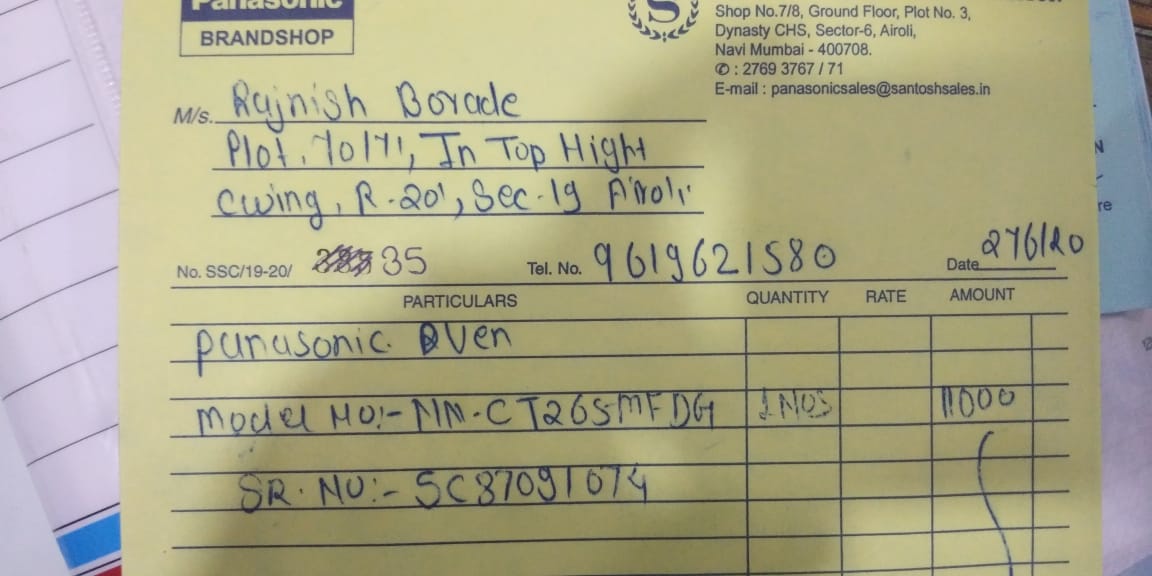 Panasonic
BRANDSHOP
Shop No.7/8, Ground Floor, Plot No. 3,
Dynasty CHS, Sector-6, Airoli,
Navi Mumbai - 400708.
✆ : 2769 3767 / 71
E-mail : panasonicsales@santoshsales.in
M/s. Rajnish Borade
Plot. 70/71, In Top Hight
Cwing, R-201, Sec-19 Airoli
No. SSC/19-20/ 35
Tel. No. 9619621580
Date 27/6/20
PARTICULARS QUANTITY RATE AMOUNT
Panasonic Oven
Model NO:- NN-CT265MFDG 1 NOS 11000
SR. NO:- SC87091074